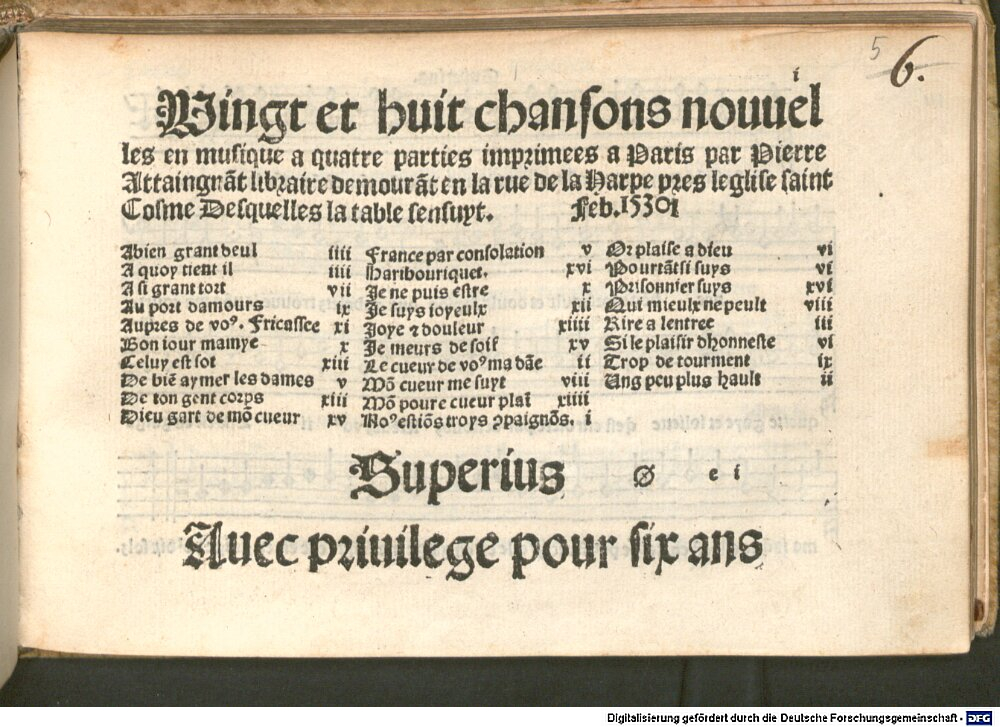 5 6.
i
Vingt et huit chansons nouuel
les en musique a quatre parties imprimees a Paris par Pierre
Attaingnãt libraire demourãt en la rue de la Harpe pres leglise saint
Cosme Desquelles la table sensuyt. Feb. 1530
A bien grant deul iiii
A quoy tient il iiii
A si grant tort vii
Au port damours ix
Aupres de voꝰ. Fricassee xi
Bon iour mamye x
Celuy est sot xiii
De biẽ aymer les dames v
De ton gent corps xiii
Dieu gart de mõ cueur xv
France par consolation v
Haribouriquet. xvi
Je ne puis estre x
Je suys ioyeulx xii
Joye ⁊ douleur xiiii
Je meurs de soif xv
Le cueur de voꝰ ma dãe ii
Mõ cueur me suyt viii
Mõ poure cueur plaĩ xiiii
Noꝰ estiõs troys ꝯpaignõs. i
Or plaise a dieu vi
Pourtãt si suys vi
Prisonnier suys xvi
Qui mieulx ne peult viii
Rire a lentree iii
Si le plaisir dhonneste vi
Trop de tourment ix
Ung peu plus hault ii
Superius ø e i
Auec priuilege pour six ans
Digitalisierung gefördert durch die Deutsche Forschungsgemeinschaft - DFG